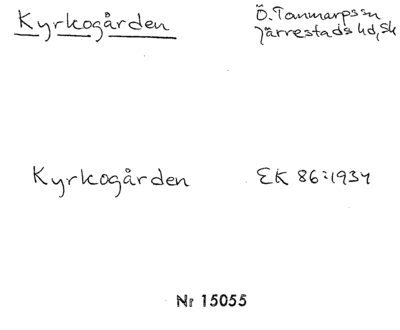 Kyrkogården
Ö. Tommarps sn
Järrestads hd, Sk
Kyrkogården
EK 86:1934
Nr 15055